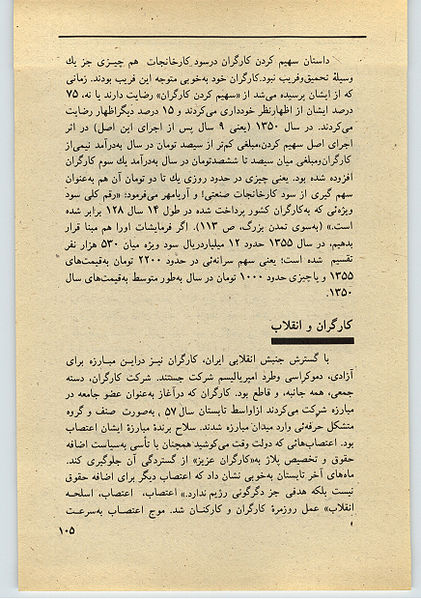 داستان سهیم کردن کارگران درسود کارخانجات هم چیزی جز یك
وسیلهٔ تحمیق‌وفریب نبود. کارگران خود به‌خوبی متوجه این فریب بودند. زمانی
که از ایشان پرسیده می‌شد از «سهیم کردن کارگران» رضایت دارند یا نه، ۷۵
درصد ایشان از اظهارنظر خودداری می‌کردند و ۱۵ درصد دیگراظهار رضایت
می‌کردند. در سال ۱۳۵۰ (یعنی ۹ سال پس از اجرای این اصل) در اثر
اجرای اصل سهیم کردن، مبلغی کم‌تر از سیصد تومان در سال به‌درآمد نیمی‌از
کارگران‌ومبلغی میان سیصد تا ششصدتومان در سال به‌درآمد یك سوم کارگران
افزوده شده بود. یعنی چیزی در حدود روزی یك تا دو تومان آن هم به‌عنوان
سهم گیری از سود کارخانجات صنعتی! و آریامهر می‌فرمود: «رقم کلی سود
ویژه‌ئی که به‌کارگران کشور پرداخت شده در طول ۱۴ سال ۱۲۸ برابر شده
است.» (به‌سوی تمدن بزرگ، ص ۱۱۳). اگر فرمایشات اورا هم مبنا قرار
بدهیم، در سال ۱۳۵۵ حدود ۱۲ میلیاردریال سود ویژه میان ۵۳۰ هزار نفر
تقسیم شده است؛ یعنی سهم سرانه‌ئی در حدود ۲۲۰۰ تومان به‌قیمت‌های
۱۳۵۵ و یاچیزی حدود ۱۰۰۰ تومان در سال به‌طور متوسط به‌قیمت‌های سال
۱۳۵۰.
کارگران و انقلاب
با گسترش جنبش انقلابی ایران، کارگران نیز دراین مبارزه برای
آزادی، دموکراسی وطرد امپریالیسم شرکت جستند. شرکت کارگران، دسته
جمعی، همه جانبه، و قاطع بود. کارگران که درآغاز به‌عنوان عضو جامعه در
مبارزه شرکت می‌کردند ازاواسط تابستان سال ۵۷، به‌صورت صنف و گروه
متشکل حرفه‌ئی وارد میدان مبارزه شدند. سلاح برندهٔ مبارزهٔ ایشان اعتصاب
بود. اعتصاب‌هائی که دولت وقت می‌کوشید همچنان با تأسی به‌سیاست اضافه
حقوق و تخصیص پلاژ به«کارگران عزیز» از گستردگی آن جلوگیری کند.
ماه‌های آخر تابستان به‌خوبی نشان داد که اعتصاب دیگر برای اضافه حقوق
نیست بلکه هدفی جز دگرگونی رژیم ندارد.» اعتصاب، اعتصاب، اسلحـه
انقلاب» عمل روزمرهٔ کارگران و کارکنـان شد. موج اعتصاب به‌سرعـت
۱۰۵